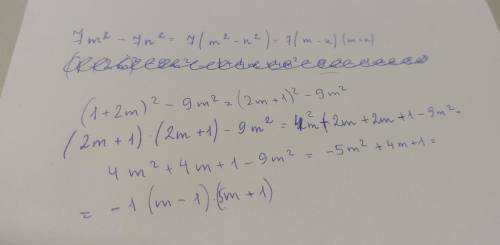 7m² - 7n² = 7(m² - n²) = 7(m - n)(m + n)
(1 + 2m)² - 9m² = (2m + 1)² - 9m²
(2m + 1) · (2m + 1) - 9m² = 4m² + 2m + 2m + 1 - 9m² =
4m² + 4m + 1 - 9m² = -5m² + 4m + 1 =
= -1(m - 1) · (5m + 1)